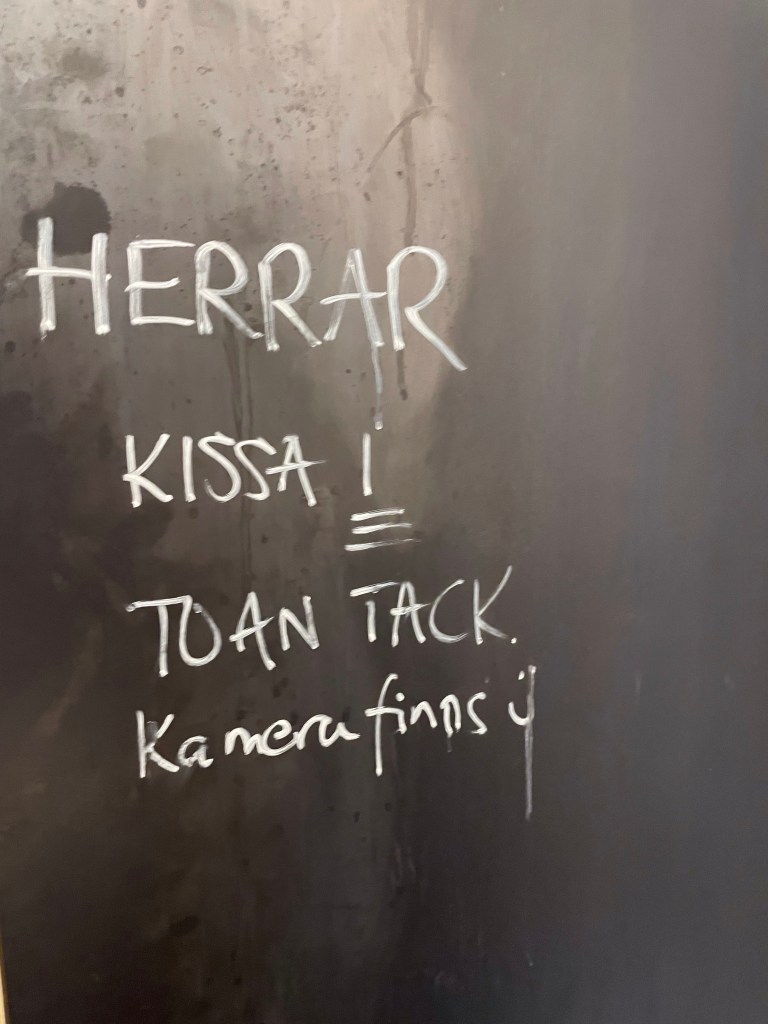 HERRAR
KISSA I
TOAN TACK.
Kamera finns :)